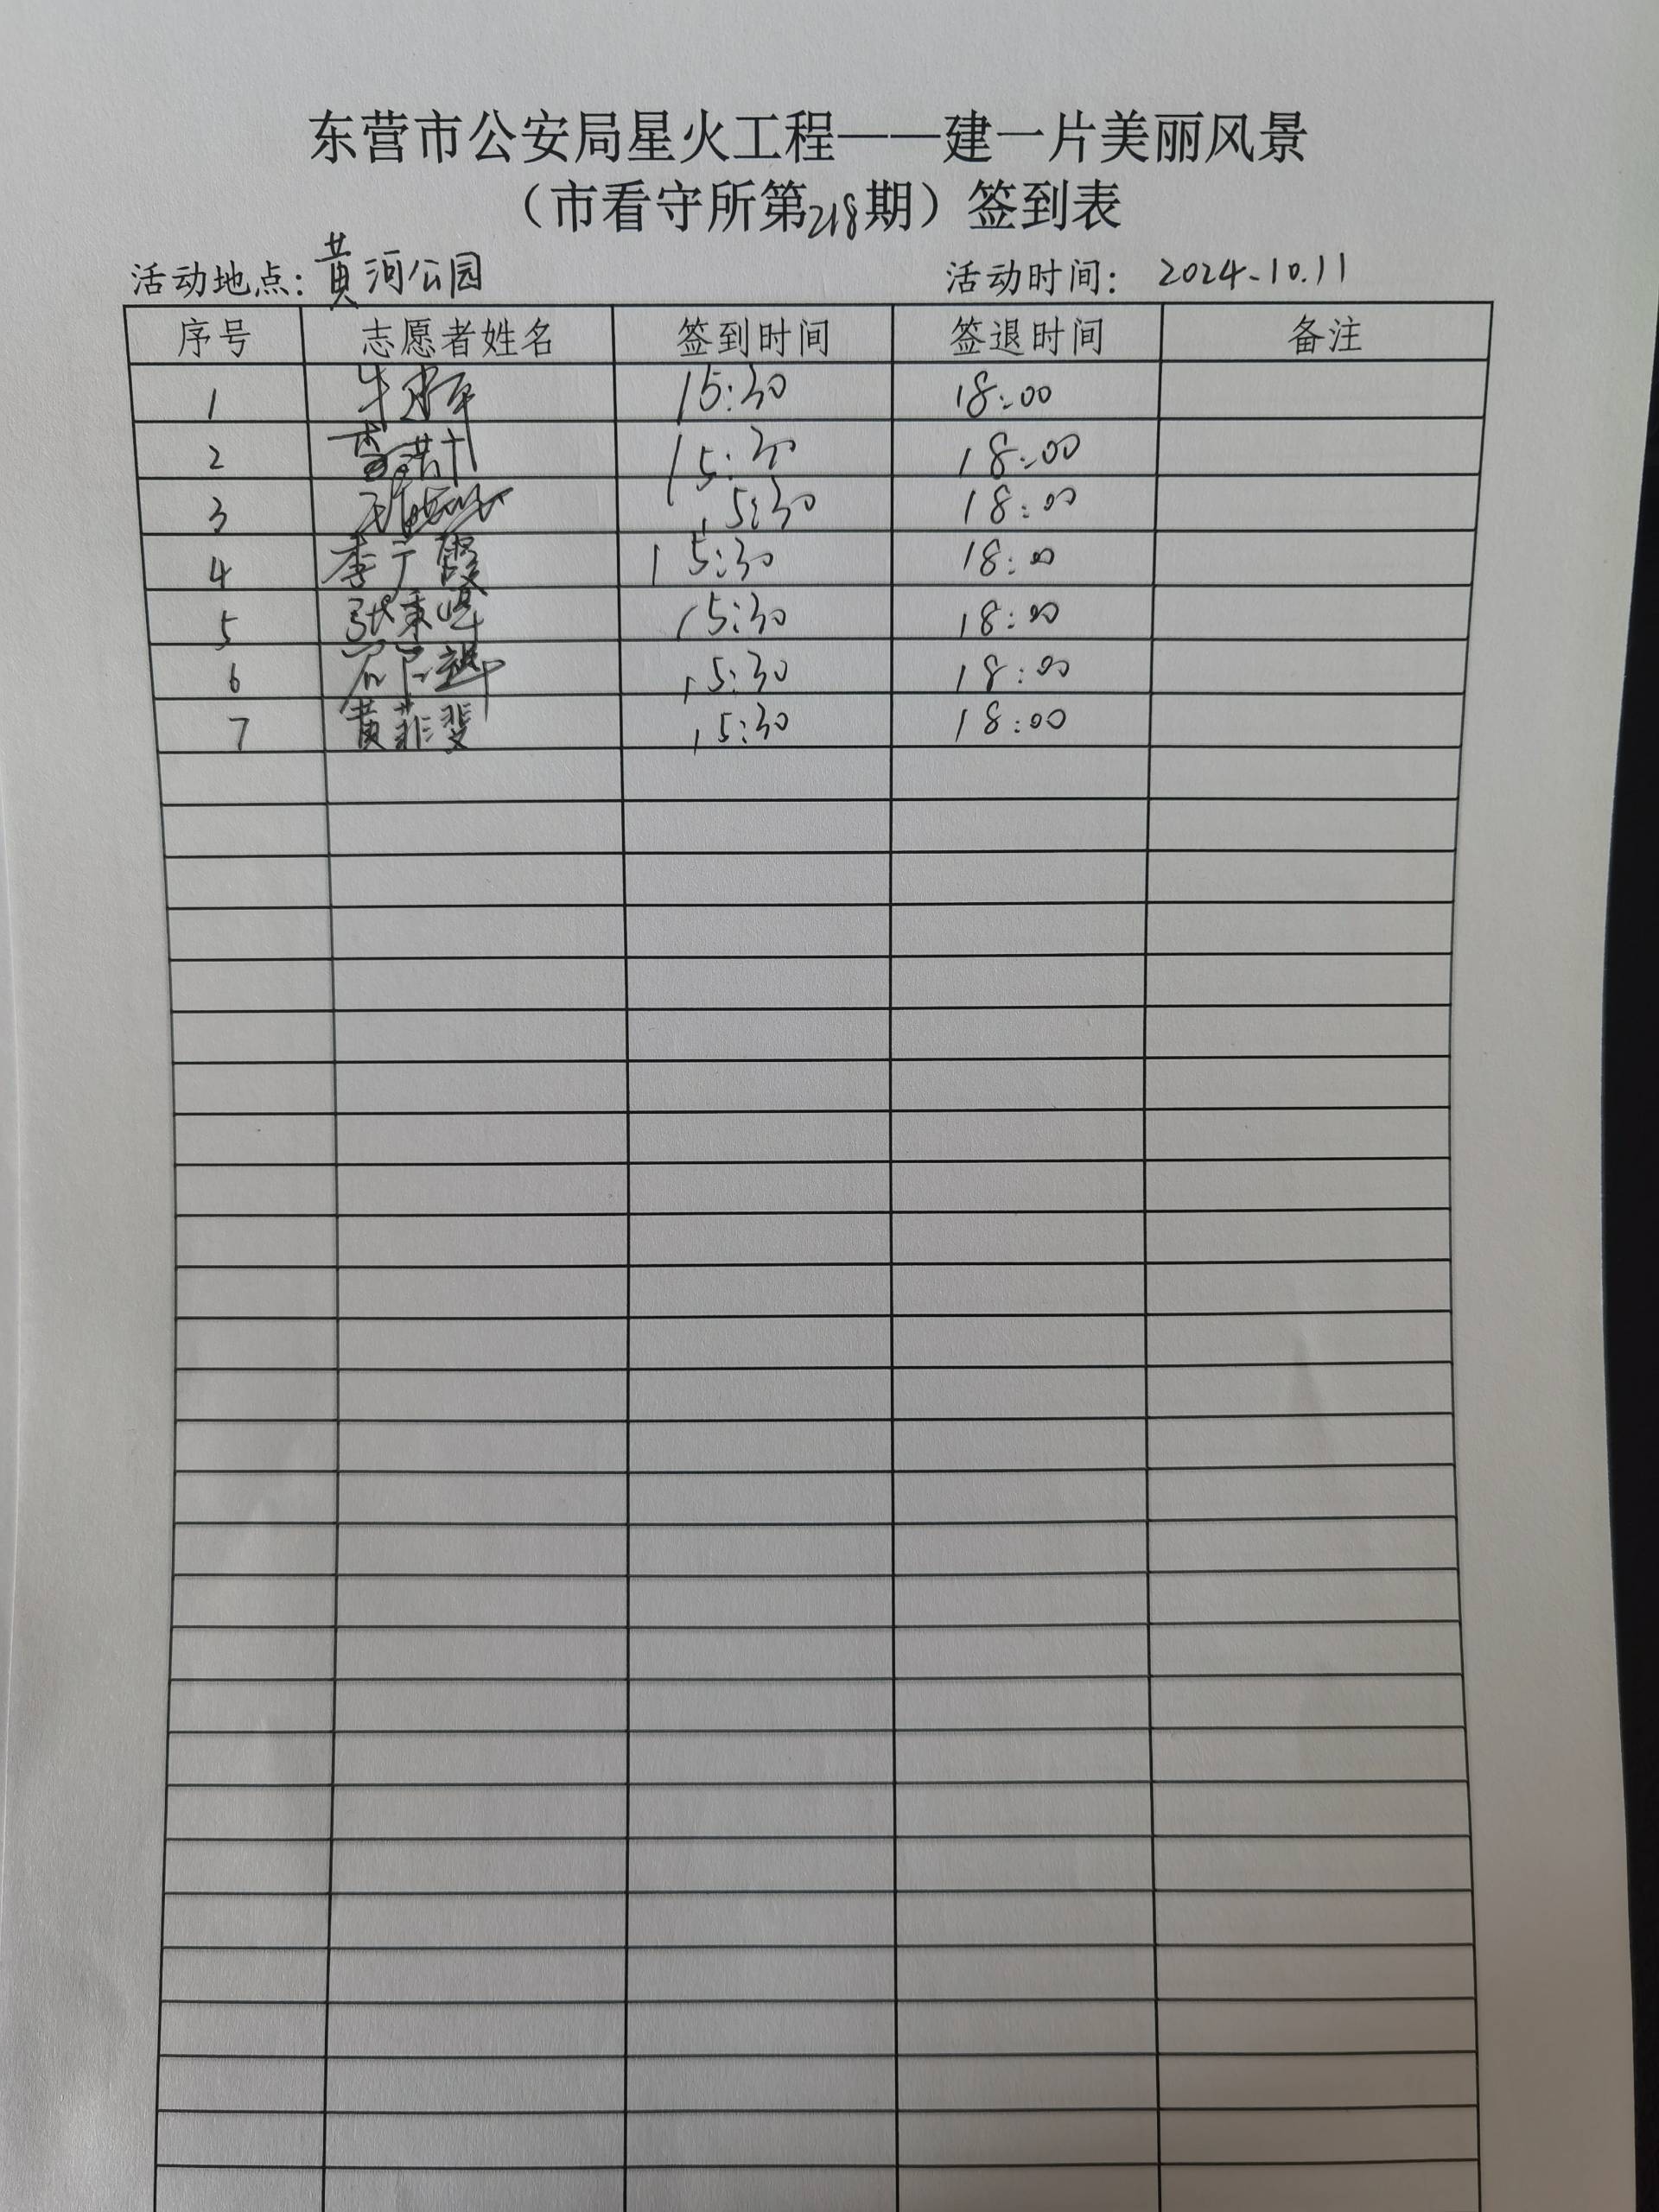 东营市公安局星火工程——建一片美丽风景
（市看守所第218期）签到表
活动地点：黄河公园 活动时间：2024.10.11
序号 志愿者姓名 签到时间 签退时间 备注
1 15:30 18:00
2 15:30 18:00
3 15:30 18:00
4 李广霞 15:30 18:00
5 15:30 18:00
6 15:30 18:00
7 黄菲斐 15:30 18:00